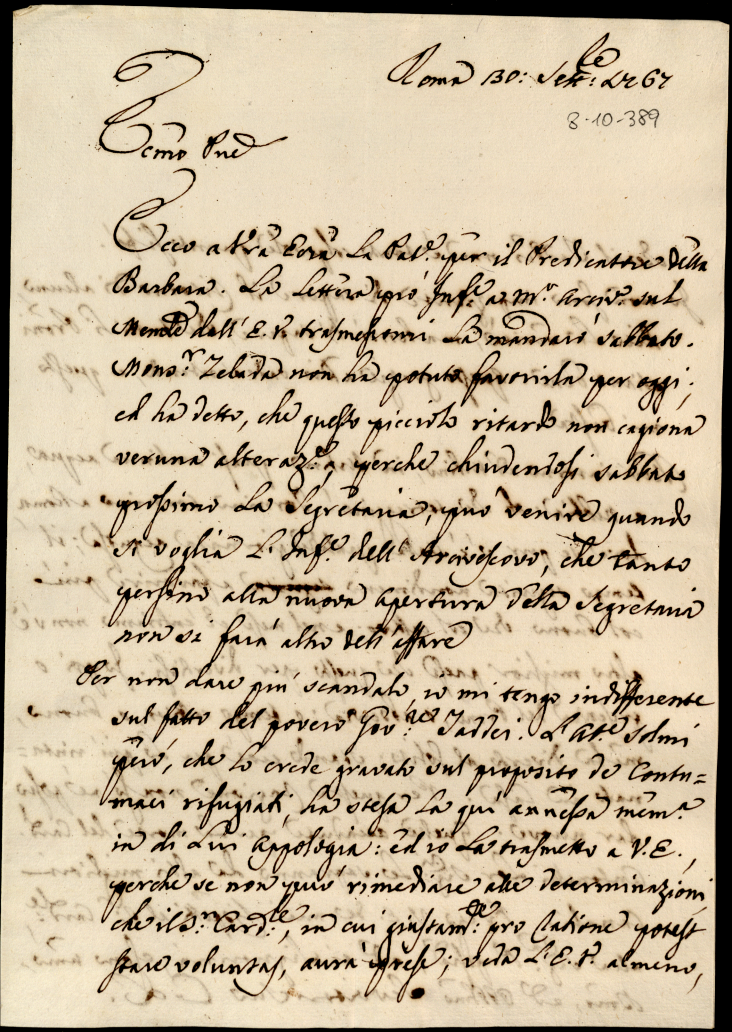 Roma 30: Sett:le 1767
8-10-389
Ecmo Pne
Ecco a Vra Ecza la Pat.e per il Predicatore della
Barbara. La lettera pro Inf.e a M.r Arciv.o sul
Memle dell' E. V. trasmessomi la mandarò sabbato.
Mons.r Zelada non ha potuto favorirla per oggi;
ed ha detto, che questo picciolo ritardo non cagiona
veruna alteraz.e, perche chiudendosi sabbato
prossimo la Segretaria, può venire quando
si voglia l'Inf.e dell' Arcivescovo, che tanto
persino alla nuova apertura della Segretaria
non si farà altro dell' affare
Per non dare più scandalo io mi tengo indifferente
sul fatto del povero Gov:re Taddei. L'Ab.e Solmi
però, che lo crede gravato sul proposito de Contu=
maci rifugiati, ha stesa la quì annessa mem.a
in di Lui Appologia: ed io la trasmetto a V. E.,
perche se non può rimediare alle determinazioni,
che il S.r Card:le, in cui giustam:te pro ratione potest
stare voluntas, avrà prese; veda L'E. V. almeno,